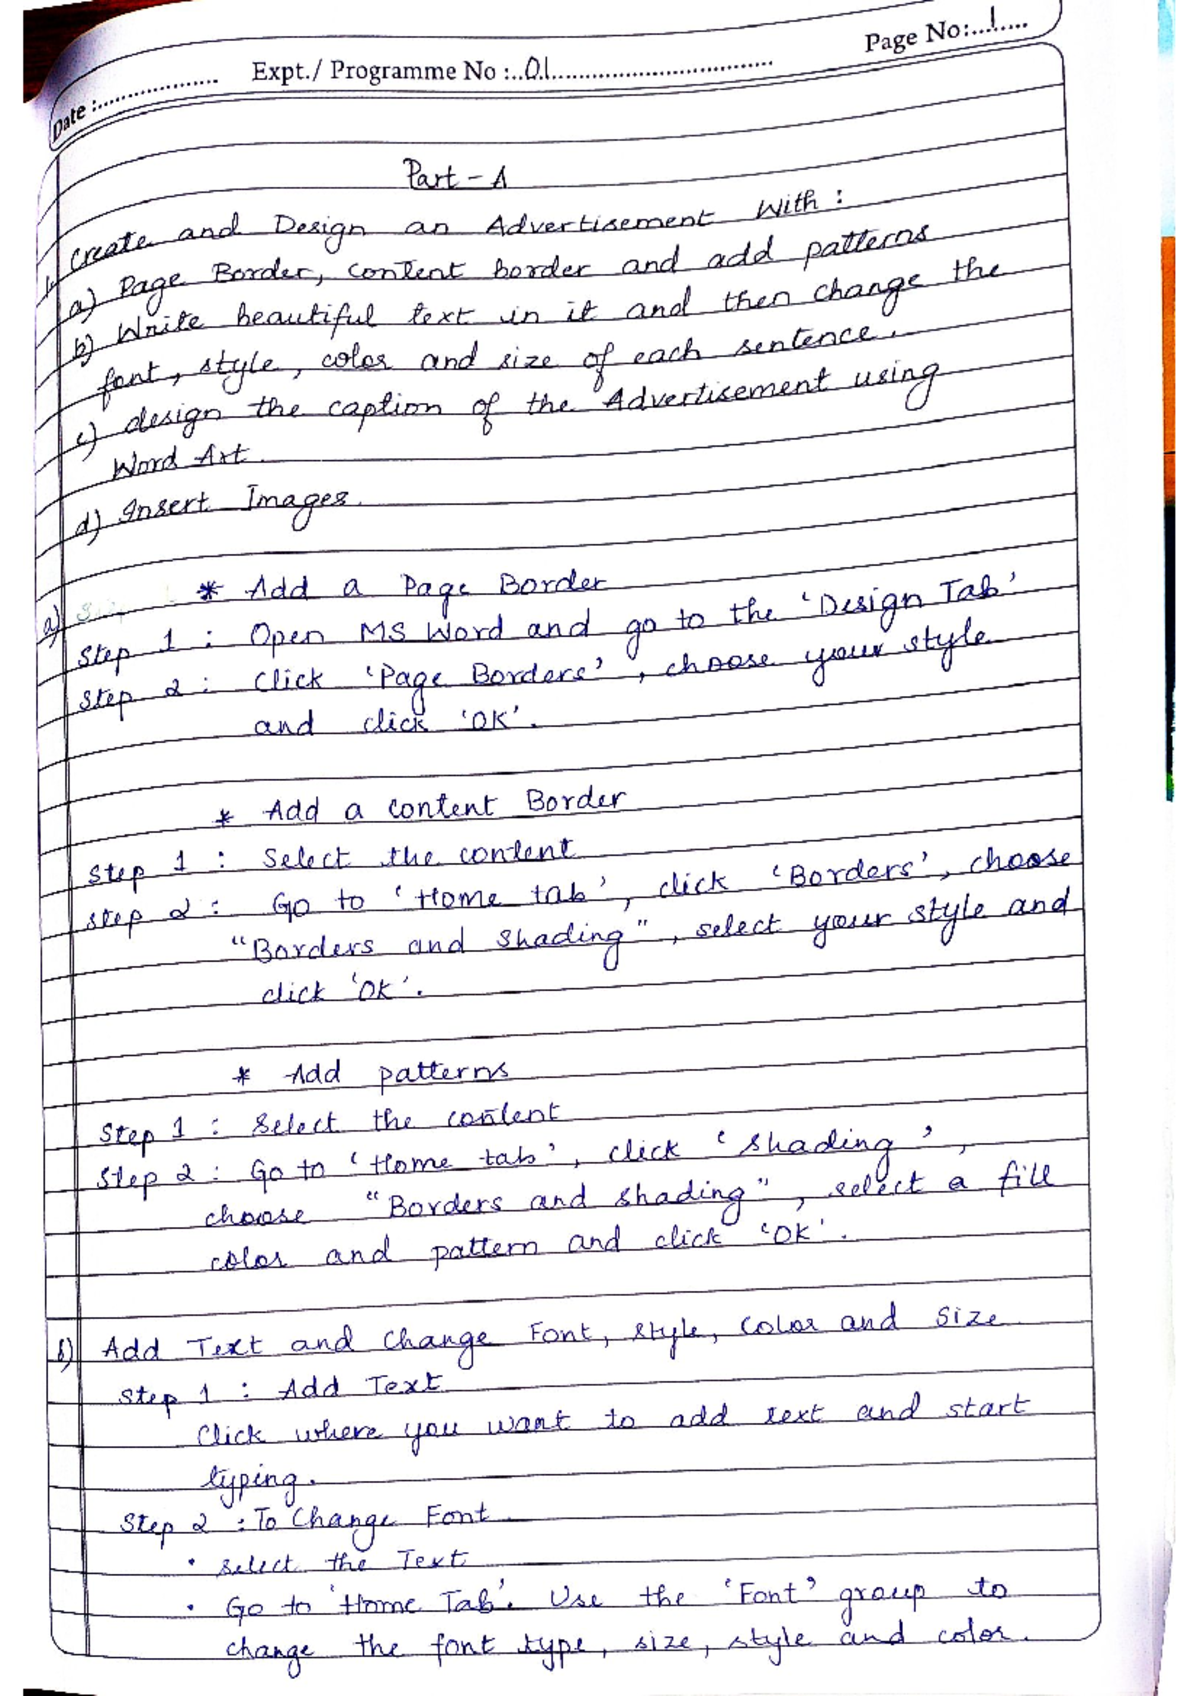 Page No:...1.....
Date :................... Expt./ Programme No :..01..................................
Part - A
1. Create and Design an Advertisement With :
a) Page Border, content border and add patterns
b) Write beautiful text in it and then change the
font, style, color and size of each sentence.
c) design the caption of the Advertisement using
Word Art.
d) Insert Images.
a)
* Add a Page Border
Step 1 : Open MS Word and go to the 'Design Tab'
Step 2 : Click 'Page Borders', choose your style
and click 'OK'.
* Add a content Border
Step 1 : Select the content
Step 2 : Go to 'Home tab', click 'Borders', choose
"Borders and Shading", select your style and
click 'OK'.
* Add patterns
Step 1 : Select the content
Step 2 : Go to 'Home tab', click 'Shading',
choose "Borders and shading", select a fill
color and pattern and click 'OK'.
b) Add Text and Change Font, style, color and size
Step 1 : Add Text
Click where you want to add text and start
typing.
Step 2 : To Change Font
• select the Text
• Go to 'Home Tab'. Use the 'Font' group to
change the font type, size, style and color.